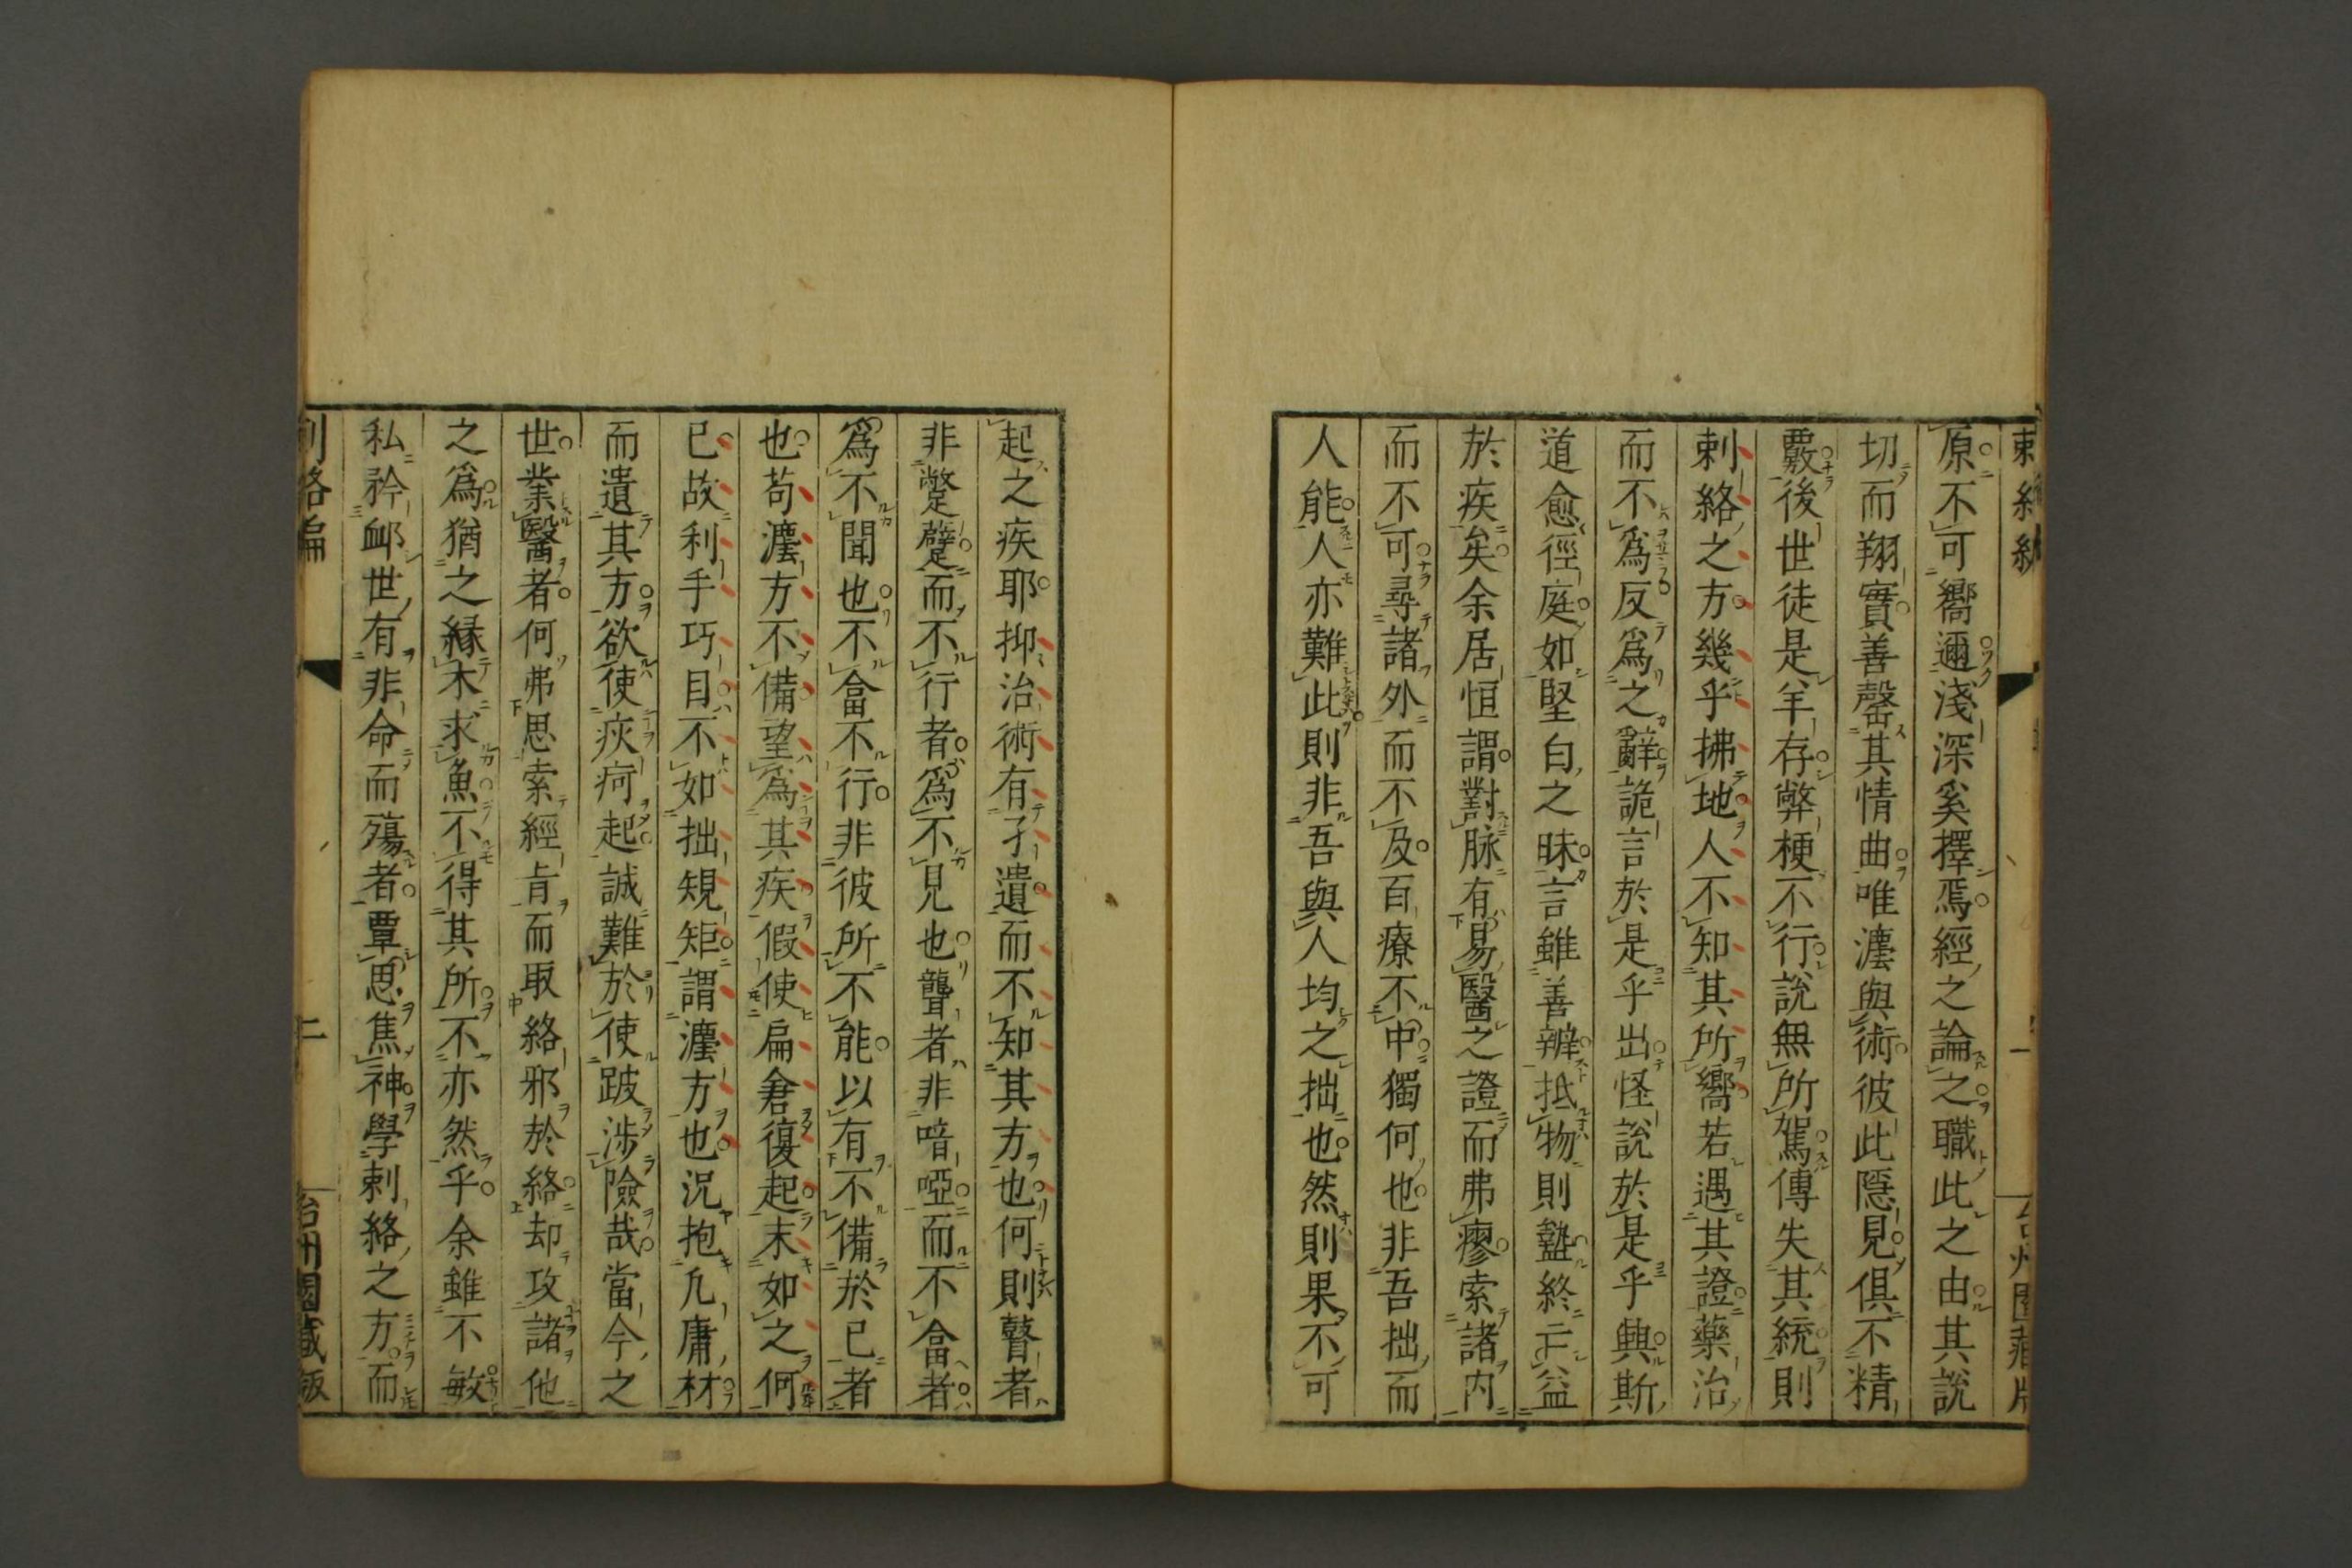 原不可嚮邇淺深奚擇焉經之論之職此之由其說
切而翔實善罄其情曲唯灋與術彼此隱見俱不精
覈後世徒是羊存弊梗不行說無所駕傳失其統則
刺絡之方幾乎拂地人不知其所嚮若遇其證藥治
而不爲反爲之辭詭言於是乎出怪說於是乎興斯
道愈徑庭如堅白之昧言雖善辨抵物則蟄終亡益
於疾矣余居恒謂對脉有易醫之證而弗瘳索諸内
而不可尋諸外而不及百療不中獨何也非吾拙而
人能人亦難此則非吾與人均之拙也然則果不可
起之疾耶抑治術有孑遺而不知其方也何則瞽者
非蹩躄而不行者爲不見也聾者非喑啞而不畣者
爲不聞也不畣不行非彼所不能以有不備於已者
也苟灋方不備望爲其疾假使扁倉復起末如之何
已故利手巧目不如拙規矩謂灋方也況抱凢庸材
而遺其方欲使疢疴起誠難於使跛涉險哉當今之
世業醫者何弗思索經㫖而取絡邪於絡却攻諸他
之爲猶之緣木求魚不得其所不亦然乎余雖不敏
私矜卹世有非命而殤者覃思焦神學刺絡之方而
刺絡編
二
台州園藏版